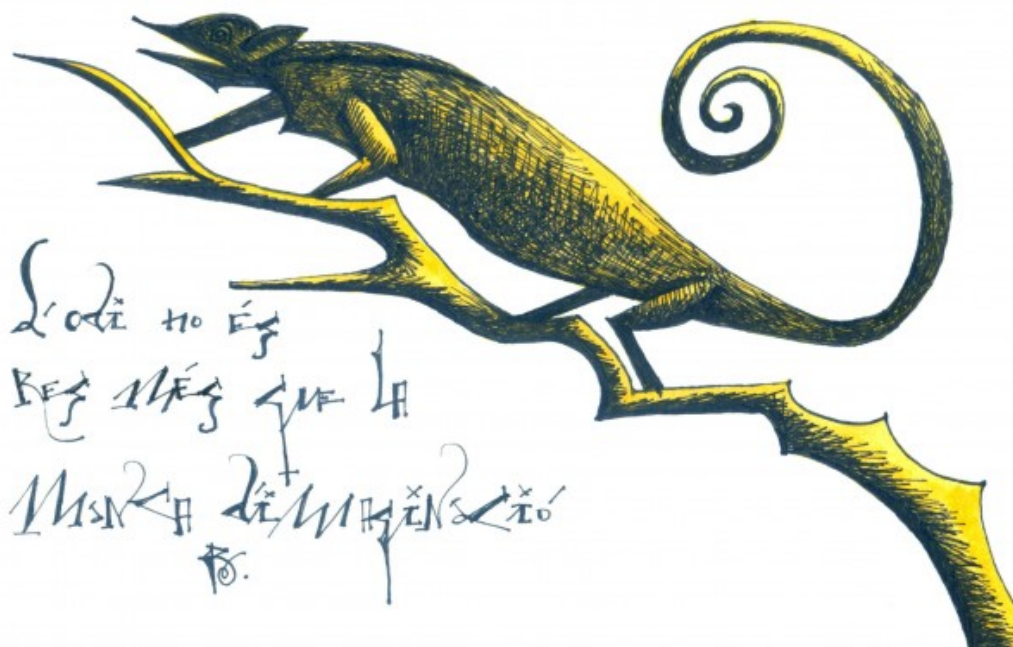 L'odi no és
Res més que la
Manca d'imaginació
B.